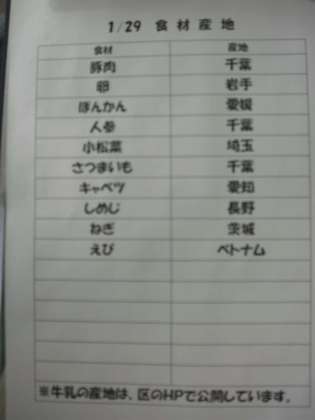 1/29 食材産地
食材 産地
豚肉 千葉
卵 岩手
ぽんかん 愛媛
人参 千葉
小松菜 埼玉
さつまいも 千葉
キャベツ 愛知
しめじ 長野
ねぎ 茨城
えび ベトナム
※牛乳の産地は、区のHPで公開しています。